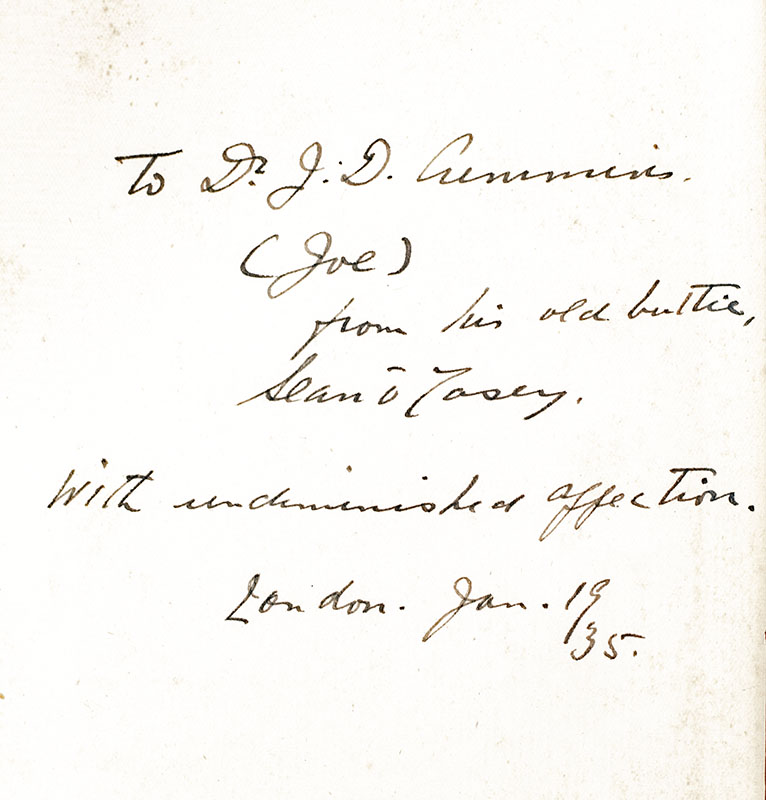 To Dr. J. D. Cummins.
(Joe)
from his old buttie,
Sean O'Casey.
With undiminished affection.
London. Jan. 19
/35.